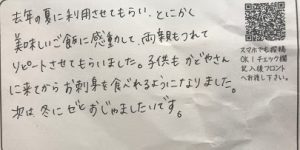 去年の夏に利用させてもらい、とにかく
美味しいご飯に感動して、両親もつれて
リピートさせてもらいました。子供も かどやさん
に来てからお刺身を食べれるようになりました。
次は冬にぜひおじゃましたいです。
スマホでも投稿
OK！チェック欄
記入後フロント
へお渡し下さい。